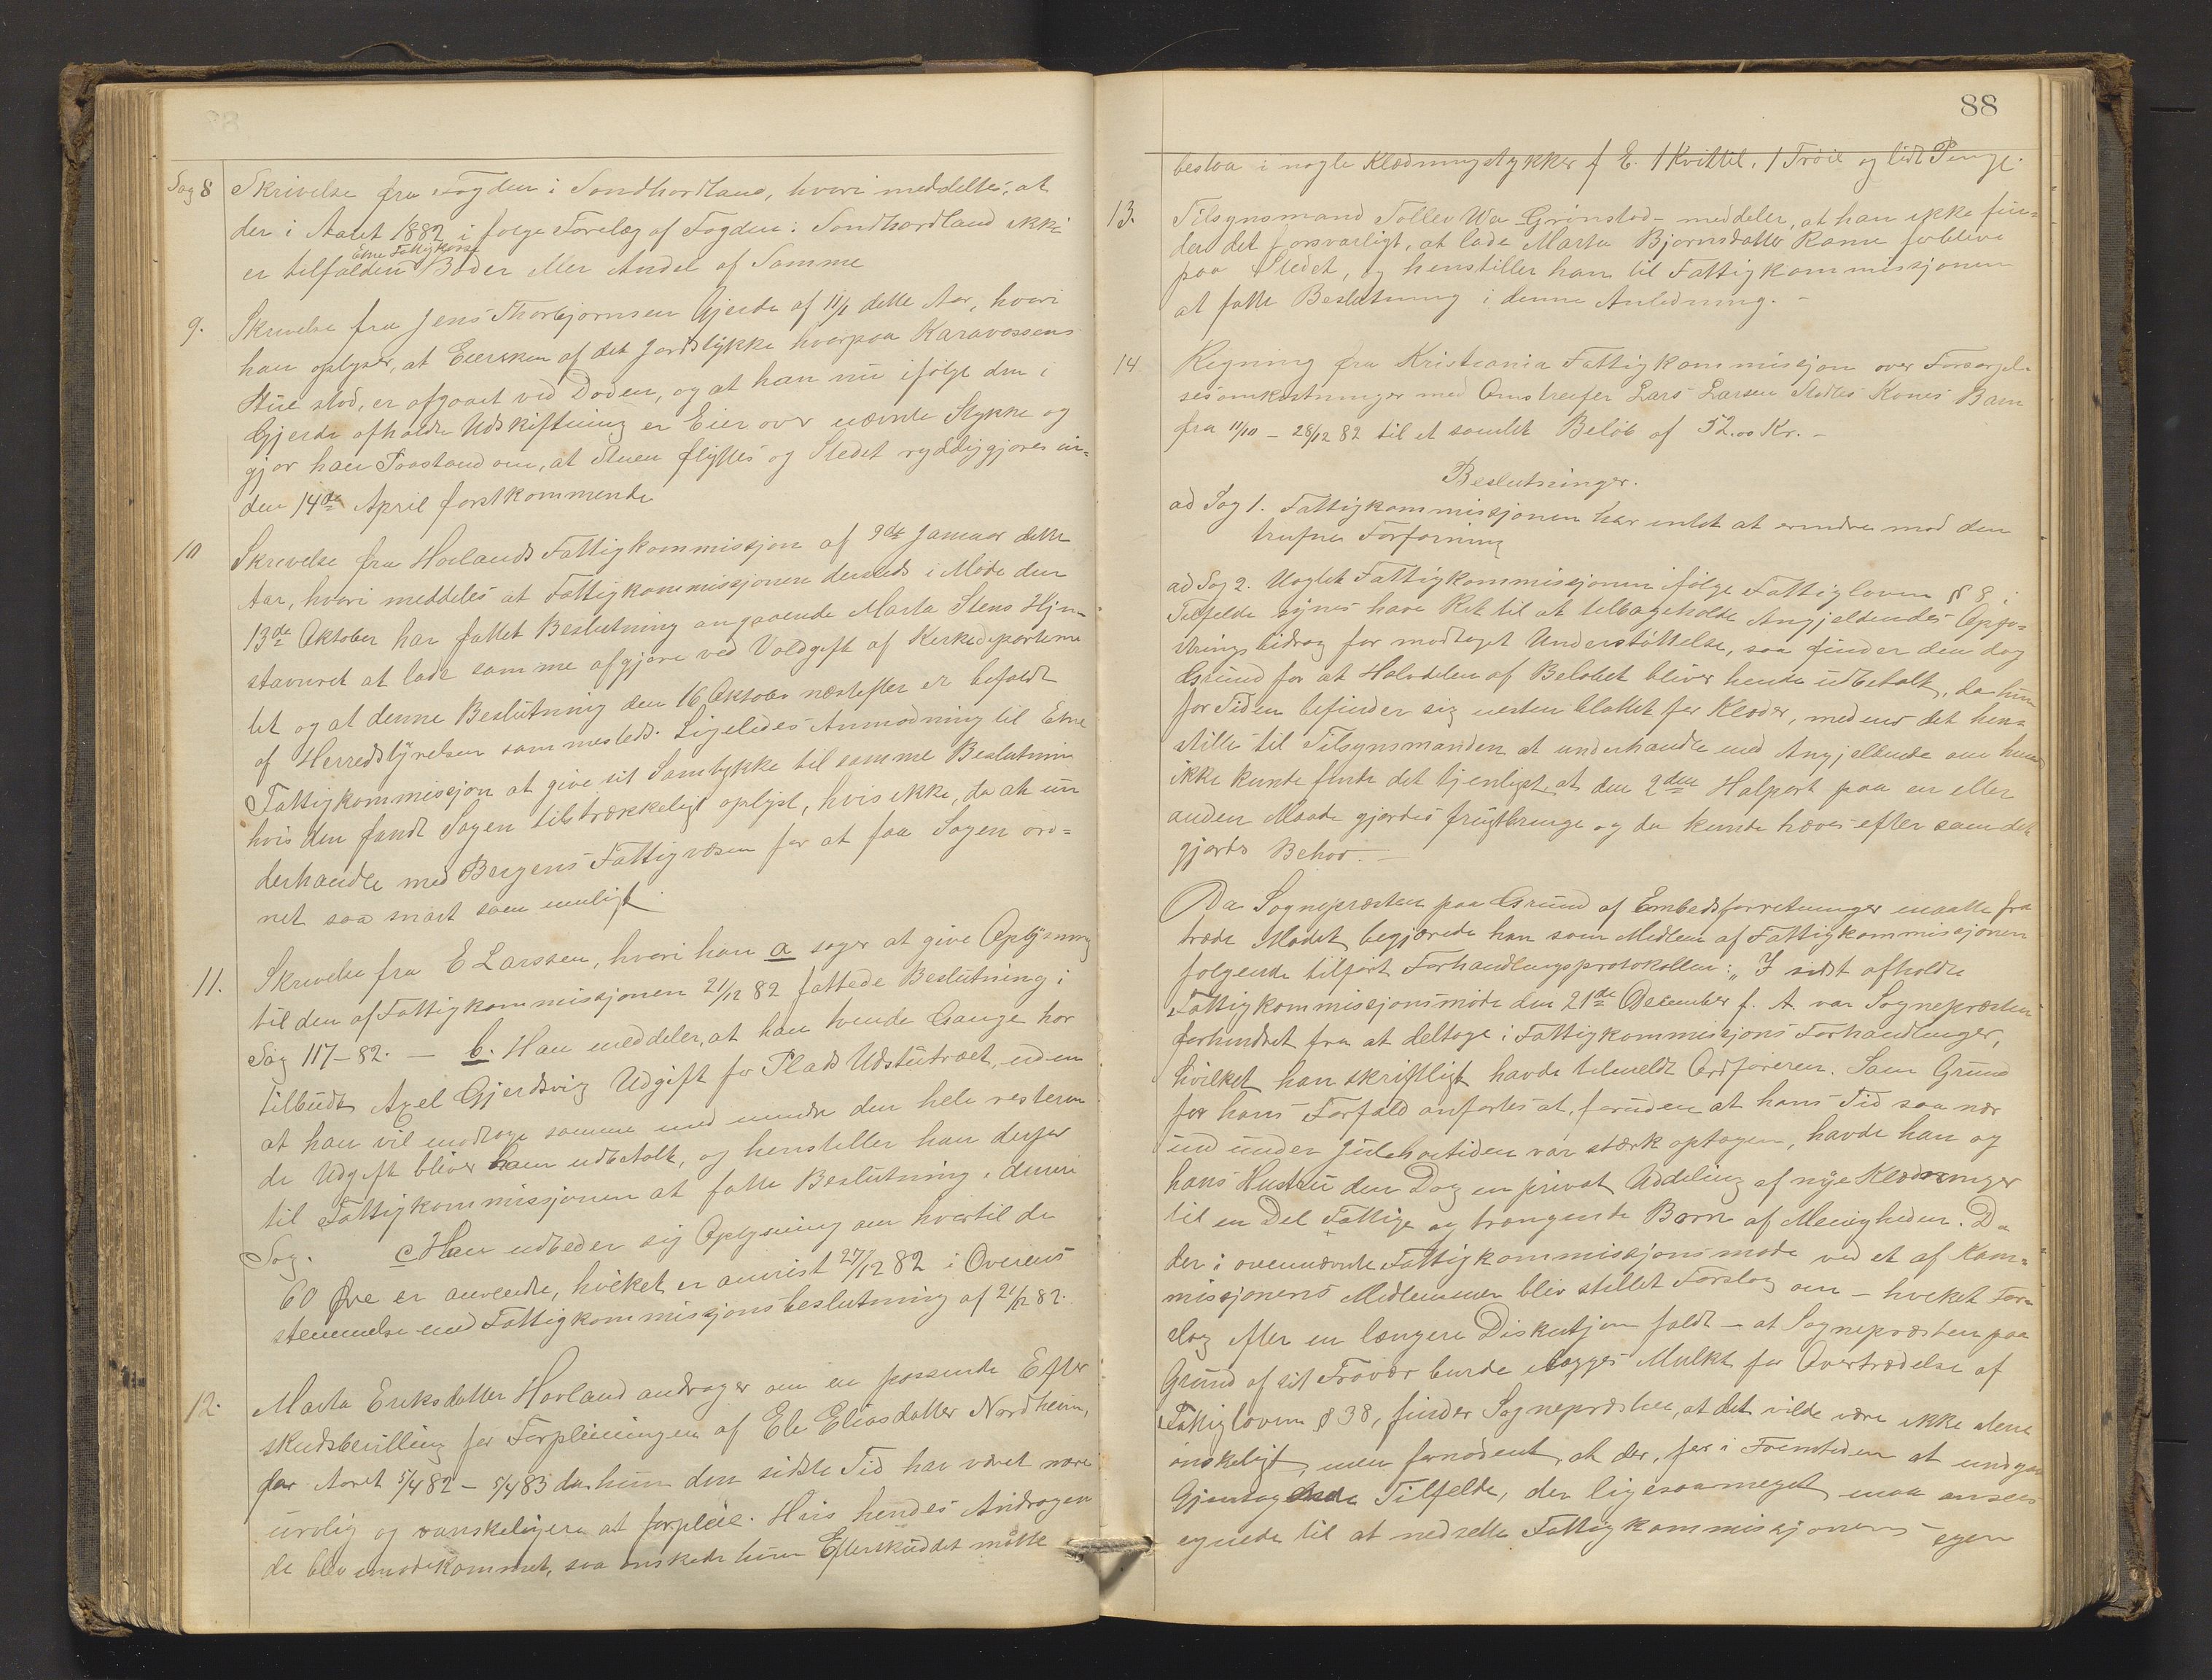 Sag 8 Skrivelse fra Fogden i Søndhordland, hvori meddeltes, at
der i Aaret 1882 i følge Forelæg af Fogden i Søndhordland ikke
Etne Fattigkasse
er tilfalden Bøder eller Andel af Samme
9. Skrivelse fra Jens Thorbjørnsen Gjerde af 11/1 dette Aar, hvori
han oplyser, at Eiersken af det Jordstykke hvorpaa Karavossens
Stue stod, er afgaaet ved Døden, og at han nu ifølge den i
Gjerde afholdte Udskiftning er Eier over nævnte Stykke og
gjør han Paastand om, at Stuen flyttes og Stedet ryddiggjøres in-
den 14de April førstkommende
10 Skrivelse fra Hovlands Fattigkommissjon af 9de Januar dette
Aar, hvori meddeles at Fattigkommissjonen dersteds i Møde den
13de Oktober har fattet Beslutning angaaende Marta Stens Hjem-
stavnret at lade samme afgjøre ved Voldgift af Kirkedepartemen
tet og at denne Beslutning den 16 Oktober næstefter er befaldt
af Herredstyrelsen sammesteds. Ligeledes Anmodning til Etne
Fattigkommissjon at give sit Samtykke til samme Beslutning
hvis den fandt Sagen tilstrækkeligt oplyst, hvis ikke, da at un
derhandle med Bergens Fattigvæsen for at faa Sagen ord=
net saa snart som muligt
11. Skrivelse fra E Larssen, hvori han a søger at give Oplysning
til den af Fattigkommissjonen 21/12 82 fattede Beslutning i
Sag 117-82. — b. Han meddeler, at han tvende Gange har
tilbudt Axel Gjerdsvig Udgift for Plads Udstutræet, uden
at han vil modtage samme med mindre den hele resteren
de Udgift bliver ham udbetalt, og henstiller han derfor
til Fattigkommissjonen at fatte Beslutning i denne
Sag. c Han udbeder sig Oplysning om hvortil de
60 Øre er anvendte, hvilket er anvist 27/12 82 i Overens
stemmelse med Fattigkommissjonsbeslutning af 21/12 82.
12. Marta Eriksdatter Hovland andrager om en passende Efter
skudsbevilling for Forpleiningen af Eli Eliasdatter Nordheim,
for Aaret 5/4 82 - 5/4 83 da hun den sidste Tid har været mere
urolig og vanskeligere at forpleie. Hvis hendes Andragen
de blev imødekommet, saa ønskede hun Efterskuddet måtte
88
bestaa i nogle Klædningstykker f E. 1 Kvittil, 1 Trøie og lidt Penge.
13. Tilsynsmand Tollev Wa Grindstad meddeler, at han ikke fin-
der det forsvarligt, at lade Marta Bjørnsdatter Rame forblive
paa Stedet, og henstiller han til Fattigkommissjonen
at fatte Beslutning i denne Anledning. -
14 Regning fra Kristiania Fattigkommissjon over Forsørgel-
sesomkostninger med Omstreifer Lars Larsen Kones Barn
fra 11/10 - 28/12 82 til et samlet Beløb af 52.00 Kr. -
Beslutninger.
ad Sag 1. Fattigkommissjonen har intet at erindre mod den
trufne Forføining
ad Sag 2. Uagtet Fattigkommissjonen ifølge Fattigloven § 8 i
Tilfelde synes have Ret til at tilbageholde Angjeldendes Opfo=
strings bidrag for modtaget Understøttelse, saa finder den dog
Grund for at Halvdelen af Beløbet bliver hende udbetalt, da hun
for Tiden befinder sig nesten blottet for Klæder, medens det hen=
stilles til Tilsynsmanden at underhandle med Angjeldende om hun
ikke kunde finde det tjenligst, at den 2den Halpart paa en eller
anden Maade gjordes frugtbringe og da kunde hæves efter som det
gjordes Behov. —
Da Sognepræsten paa Grund af Embedsforretninger maatte fra
træde Mødet begjærede han som Medlem af Fattigkommissjonen
følgende tilført Forhandlingsprotokollen: „I sidst afholdte
Fattigkommissjonsmøde den 21de December f. A. var Sognepræsten
forhindret fra at deltage i Fattigkommissjons Forhandlinger,
hvilket han skriftligt havde tilmeldt Ordføreren. Som Grund
for hans Forfald anførtes at, foruden at hans Tid saa nær
ind under Julehøitiden var stærk optagen, havde han og
hans Hustru den Dag en privat Uddeling af nye Klædninger
til en Del Fattige og trængende Børn af Menigheden. Da
der i ovennævnte Fattigkommissjonsmøde ved et af Kom=
missjonens Medlemmer blev stillet Forslag om — hvilket For-
slag efter en længere Diskutjon faldt — at Sognepræsten paa
Grund af sit Fravær burde ilægges Mulkt for Overtrædelse af
Fattigloven § 38, finder Sognepræsten, at det vilde være ikke alene
ønskeligt, men fornødent, at der, for i Fremtiden at undgaa
Gjentagende Tilfelde, der ligesaameget maa ansees
egnede til at nedsette Fattigkommissjonens egen